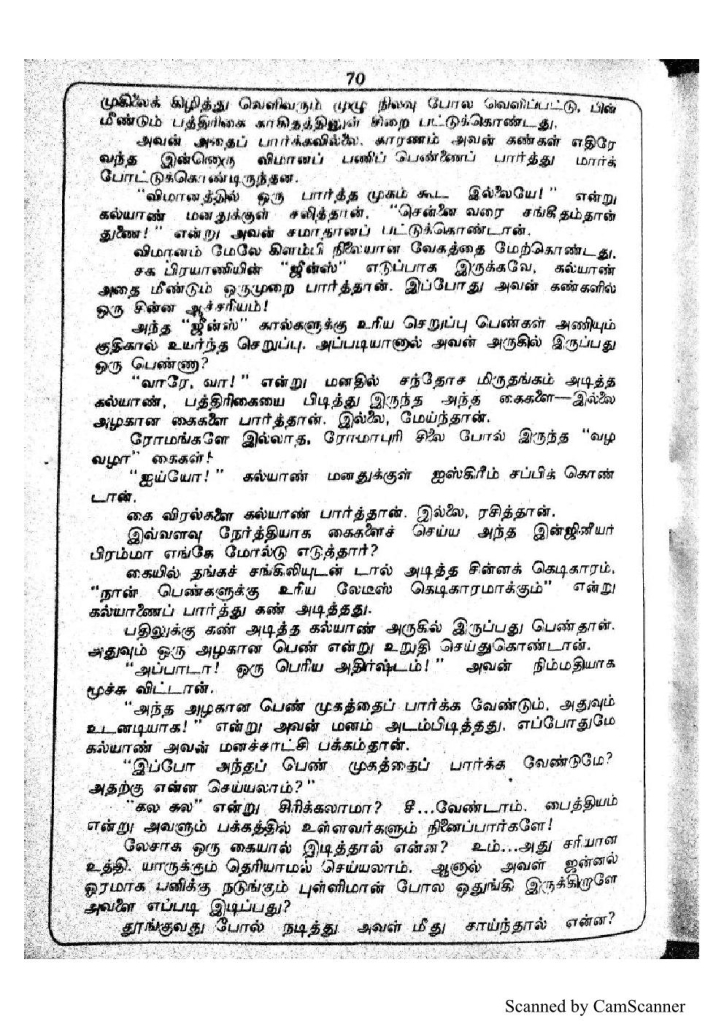 70
முகிலைக் கிழித்து வெளிவரும் முழு நிலவு போல வெளிப்பட்டு, பின்
மீண்டும் பத்திரிகை காகிதத்தினுள் சிறை பட்டுக்கொண்டது.
அவன் அதைப் பார்க்கவில்லை. காரணம் அவன் கண்கள் எதிரே
வந்த இன்னொரு விமானப் பணிப் பெண்ணைப் பார்த்து மார்க்
போட்டுக்கொண்டிருந்தன.
"விமானத்தில் ஒரு பார்த்த முகம் கூட இல்லையே!" என்று
கல்யாண் மனதுக்குள் சலித்தான். "சென்னை வரை சங்கீதம்தான்
துணை!" என்று அவன் சமாதானப் பட்டுக்கொண்டான்.
விமானம் மேலே கிளம்பி நிலையான வேகத்தை மேற்கொண்டது.
சக பிரயாணியின் "ஜீன்ஸ்" எடுப்பாக இருக்கவே, கல்யாண்
அதை மீண்டும் ஒருமுறை பார்த்தான். இப்போது அவன் கண்களில்
ஒரு சின்ன ஆச்சரியம்!
அந்த "ஜீன்ஸ்" கால்களுக்கு உரிய செறுப்பு பெண்கள் அணியும்
குதிகால் உயர்ந்த செறுப்பு. அப்படியானால் அவன் அருகில் இருப்பது
ஒரு பெண்ணா?
"வாரே, வா!" என்று மனதில் சந்தோச மிருதங்கம் அடித்த
கல்யாண், பத்திரிகையை பிடித்து இருந்த அந்த கைகளை—இல்லை
அழகான கைகளை பார்த்தான். இல்லை, மேய்ந்தான்.
ரோமங்களே இல்லாத, ரோமாபுரி சிலை போல் இருந்த "வழ
வழா" கைகள்!
"ஐய்யோ!" கல்யாண் மனதுக்குள் ஐஸ்கிரீம் சப்பிக் கொண்
டான்.
கை விரல்களை கல்யாண் பார்த்தான். இல்லை, ரசித்தான்.
இவ்வளவு நேர்த்தியாக கைகளைச் செய்ய அந்த இன்ஜினீயர்
பிரம்மா எங்கே மோல்டு எடுத்தார்?
கையில் தங்கச் சங்கிலியுடன் டால் அடித்த சின்னக் கெடிகாரம்.
"நான் பெண்களுக்கு உரிய லேடீஸ் கெடிகாரமாக்கும்" என்று
கல்யாணைப் பார்த்து கண் அடித்தது.
பதிலுக்கு கண் அடித்த கல்யாண் அருகில் இருப்பது பெண்தான்.
அதுவும் ஒரு அழகான பெண் என்று உறுதி செய்துகொண்டான்.
"அப்பாடா! ஒரு பெரிய அதிர்ஷ்டம்!" அவன் நிம்மதியாக
மூச்சு விட்டான்.
"அந்த அழகான பெண் முகத்தைப் பார்க்க வேண்டும். அதுவும்
உடனடியாக!" என்று அவன் மனம் அடம்பிடித்தது. எப்போதுமே
கல்யாண் அவன் மனச்சாட்சி பக்கம்தான்.
"இப்போ அந்தப் பெண் முகத்தைப் பார்க்க வேண்டுமே?
அதற்கு என்ன செய்யலாம்?"
"கல கல" என்று சிரிக்கலாமா? சீ...வேண்டாம். பைத்தியம்
என்று அவளும் பக்கத்தில் உள்ளவர்களும் நினைப்பார்களே!
லேசாக ஒரு கையால் இடித்தால் என்ன? உம்...அது சரியான
உத்தி. யாருக்கும் தெரியாமல் செய்யலாம். ஆனால் அவள் ஜன்னல்
ஓரமாக பனிக்கு நடுங்கும் புள்ளிமான் போல ஒதுங்கி இருக்கிறாளே
அவளை எப்படி இடிப்பது?
தூங்குவது போல் நடித்து அவள் மீது சாய்ந்தால் என்ன?
Scanned by CamScanner